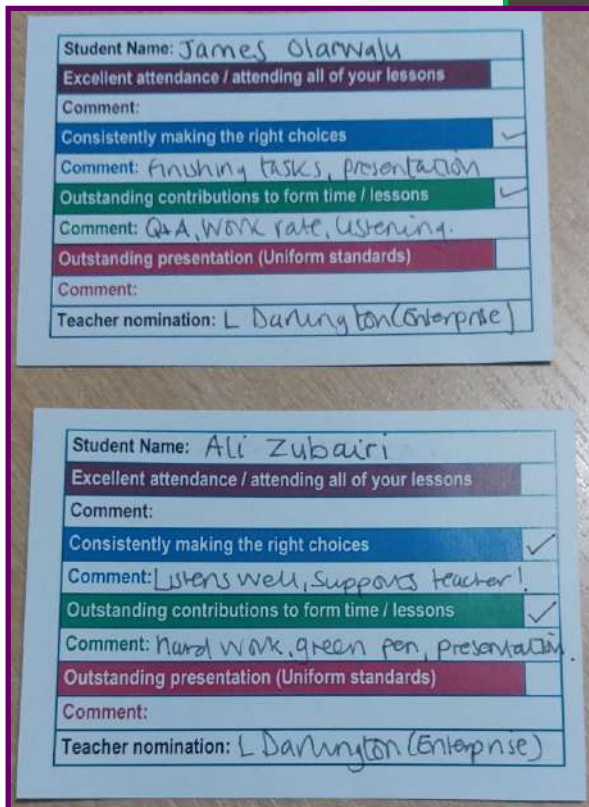 Student Name: James Olarwaju
Excellent attendance / attending all of your lessons
Comment:
Consistently making the right choices
Comment: Finishing tasks, presentation
Outstanding contributions to form time / lessons
Comment: Q+A, Work rate, Listening.
Outstanding presentation (Uniform standards)
Comment:
Teacher nomination: L Darlington (Enterprise)
Student Name: Ali Zubairi
Excellent attendance / attending all of your lessons
Comment:
Consistently making the right choices
Comment: Listens well, supports teacher!
Outstanding contributions to form time / lessons
Comment: hard work, green pen, presentation.
Outstanding presentation (Uniform standards)
Comment:
Teacher nomination: L Darlington (Enterprise)